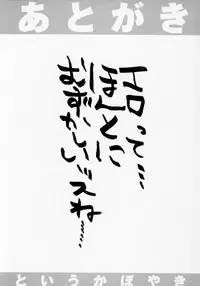 あとがき
エロって…
ほんとに
むずかしいっスね……
というかぼやき